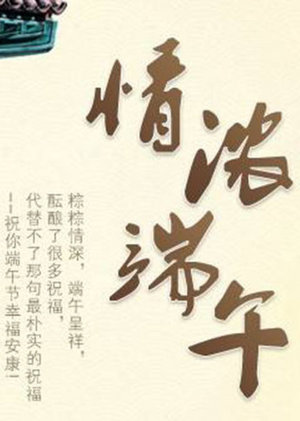 情浓端午
粽粽情深，端午呈祥，
酝酿了很多祝福，
代替不了那句最朴实的祝福
--祝你端午节幸福安康！